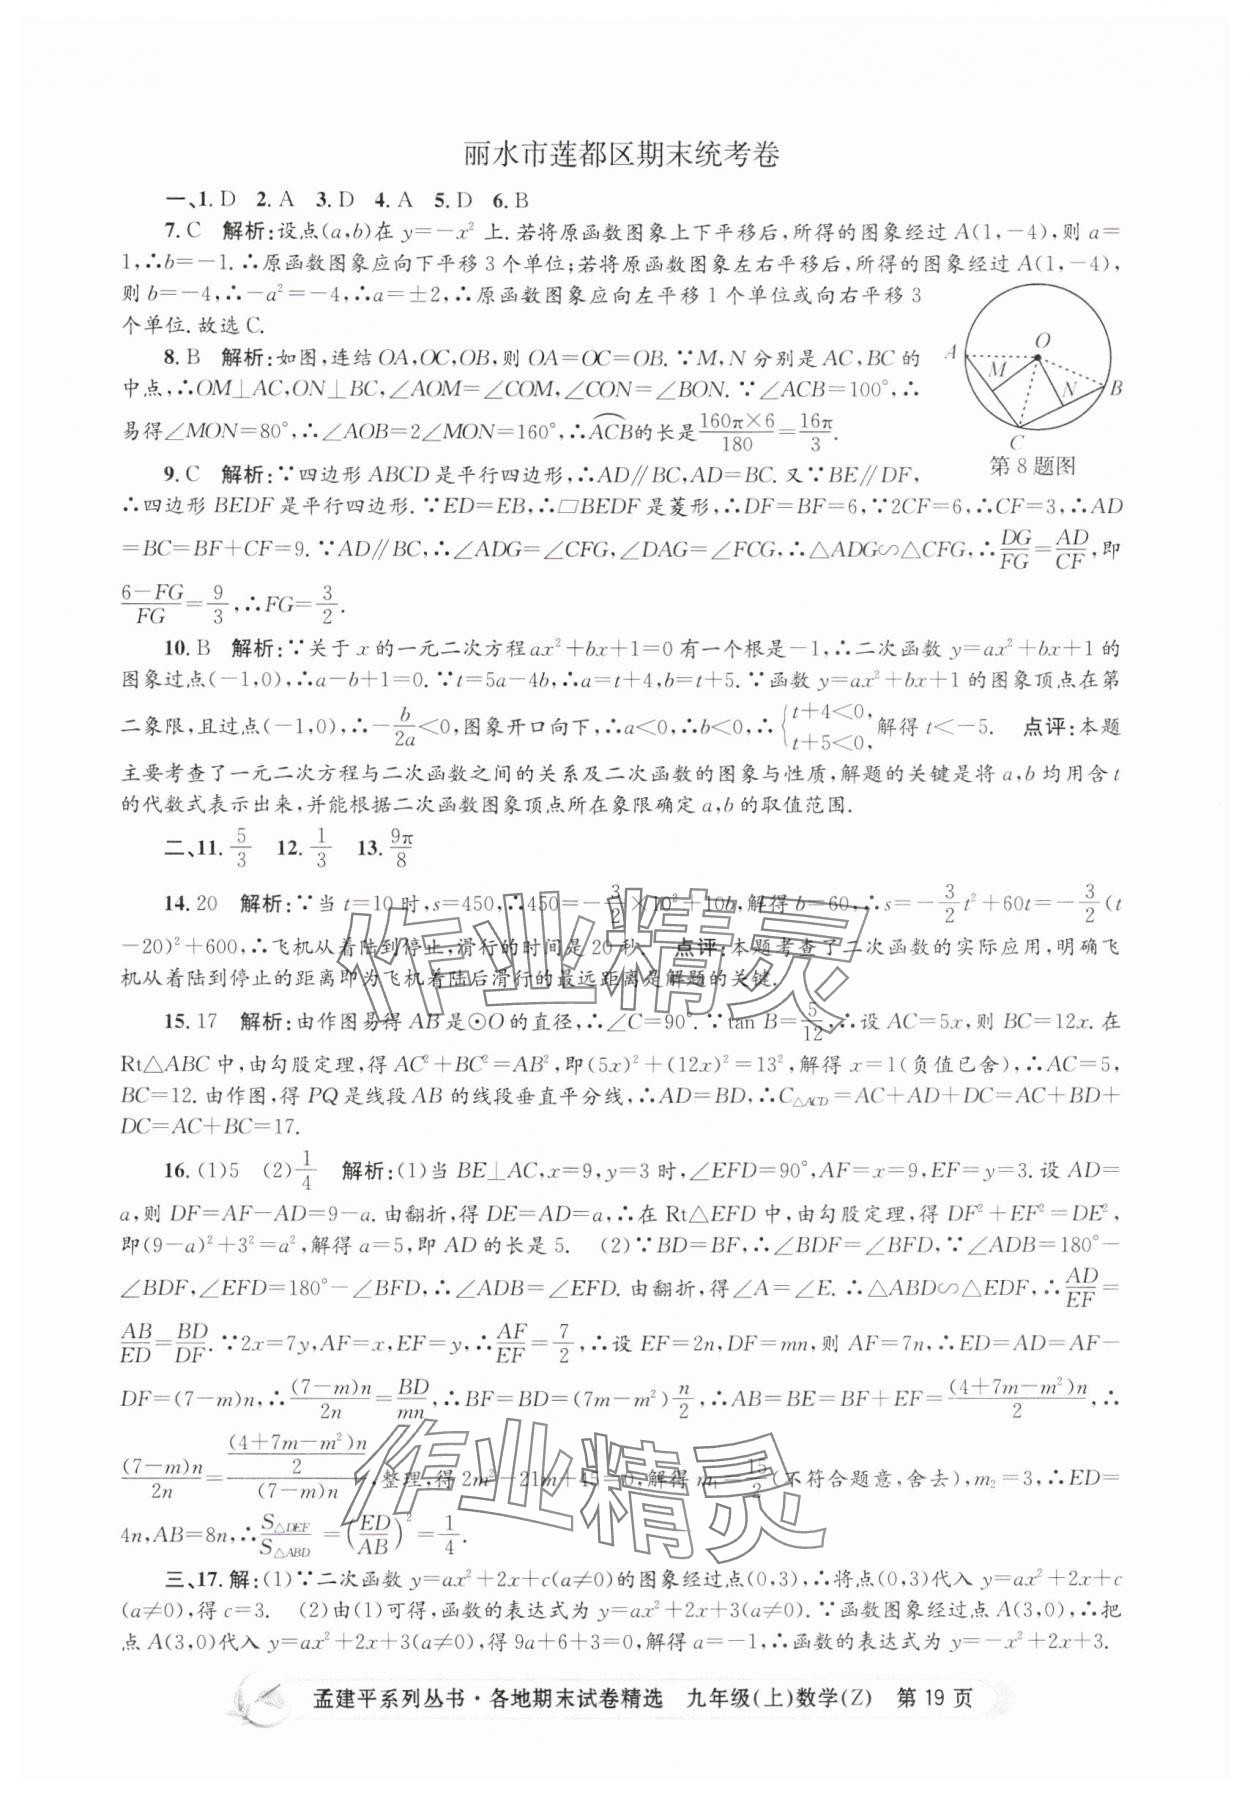 丽水市莲都区期末统考卷
一、1. D 2. A 3. D 4. A 5. D 6. B
7. C 解析:设点(a,b)在 y=-x² 上.若将原函数图象上下平移后,所得的图象经过 A(1,-4),则 a=
1,∴b=-1.∴原函数图象应向下平移 3 个单位;若将原函数图象左右平移后,所得的图象经过 A(1,-4),
则 b=-4,∴-a²=-4,∴a=±2,∴原函数图象应向左平移 1 个单位或向右平移 3
个单位.故选 C.
8. B 解析:如图,连结 OA,OC,OB,则 OA=OC=OB.∵M,N 分别是 AC,BC 的
中点,∴OM⊥AC,ON⊥BC,∠AOM=∠COM,∠CON=∠BON.∵∠ACB=100°,∴
易得∠MON=80°,∴∠AOB=2∠MON=160°,∴ACB的长是160π×6/180=16π/3.
A O M N B C
第 8 题图
9. C 解析:∵四边形 ABCD 是平行四边形,∴AD∥BC,AD=BC.又∵BE∥DF,
∴四边形 BEDF 是平行四边形.∵ED=EB,∴□BEDF 是菱形,∴DF=BF=6,∵2CF=6,∴CF=3,∴AD
=BC=BF+CF=9.∵AD∥BC,∴∠ADG=∠CFG,∠DAG=∠FCG,∴△ADG∽△CFG,∴DG/FG=AD/CF,即
(6-FG)/FG=9/3,∴FG=3/2.
10. B 解析:∵关于 x 的一元二次方程 ax²+bx+1=0 有一个根是-1,∴二次函数 y=ax²+bx+1 的
图象过点(-1,0),∴a-b+1=0.∵t=5a-4b,∴a=t+4,b=t+5.∵函数 y=ax²+bx+1 的图象顶点在第
二象限,且过点(-1,0),∴-b/2a<0,图象开口向下,∴a<0,∴b<0,∴{t+4<0, t+5<0,解得 t<-5. 点评:本题
主要考查了一元二次方程与二次函数之间的关系及二次函数的图象与性质,解题的关键是将 a,b 均用含 t
的代数式表示出来,并能根据二次函数图象顶点所在象限确定 a,b 的取值范围.
二、11. 5/3 12. 1/3 13. 9π/8
14. 20 解析:∵当 t=10 时,s=450,∴450=-3/2×10²+10b,解得 b=60,∴s=-3/2t²+60t=-3/2(t
-20)²+600,∴飞机从着陆到停止,滑行的时间是 20 秒. 点评:本题考查了二次函数的实际应用,明确飞
机从着陆到停止的距离即为飞机着陆后滑行的最远距离是解题的关键.
15. 17 解析:由作图易得 AB 是⊙O 的直径,∴∠C=90°.∵tan B=5/12,∴设 AC=5x,则 BC=12x.在
Rt△ABC 中,由勾股定理,得 AC²+BC²=AB²,即(5x)²+(12x)²=13²,解得 x=1(负值已舍),∴AC=5,
BC=12.由作图,得 PQ 是线段 AB 的线段垂直平分线,∴AD=BD,∴C△ACD=AC+AD+DC=AC+BD+
DC=AC+BC=17.
16. (1)5 (2)1/4 解析:(1)当 BE⊥AC,x=9,y=3 时,∠EFD=90°,AF=x=9,EF=y=3.设 AD=
a,则 DF=AF-AD=9-a.由翻折,得 DE=AD=a,∴在 Rt△EFD 中,由勾股定理,得 DF²+EF²=DE²,
即(9-a)²+3²=a²,解得 a=5,即 AD 的长是 5. (2)∵BD=BF,∴∠BDF=∠BFD,∵∠ADB=180°-
∠BDF,∠EFD=180°-∠BFD,∴∠ADB=∠EFD.由翻折,得∠A=∠E.∴△ABD∽△EDF,∴AD/EF=
AB/ED=BD/DF.∵2x=7y,AF=x,EF=y,∴AF/EF=7/2,∴设 EF=2n,DF=mn,则 AF=7n,∴ED=AD=AF-
DF=(7-m)n,∴(7-m)n/2n=BD/mn,∴BF=BD=(7m-m²)n/2,∴AB=BE=BF+EF=(4+7m-m²)n/2,∴
(7-m)n/2n=((4+7m-m²)n/2)/(7-m)n,整理,得 2m²-21m+45=0,解得 m₁=15/2(不符合题意,舍去),m₂=3,∴ED=
4n,AB=8n,∴S△DEF/S△ABD=(ED/AB)²=1/4.
三、17. 解:(1)∵二次函数 y=ax²+2x+c(a≠0)的图象经过点(0,3),∴将点(0,3)代入 y=ax²+2x+c
(a≠0),得 c=3. (2)由(1)可得,函数的表达式为 y=ax²+2x+3(a≠0).∵函数图象经过点 A(3,0),∴把
点 A(3,0)代入 y=ax²+2x+3(a≠0),得 9a+6+3=0,解得 a=-1,∴函数的表达式为 y=-x²+2x+3.
孟建平系列丛书·各地期末试卷精选 九年级(上)数学(Z) 第 19 页
作业精灵
作业精灵